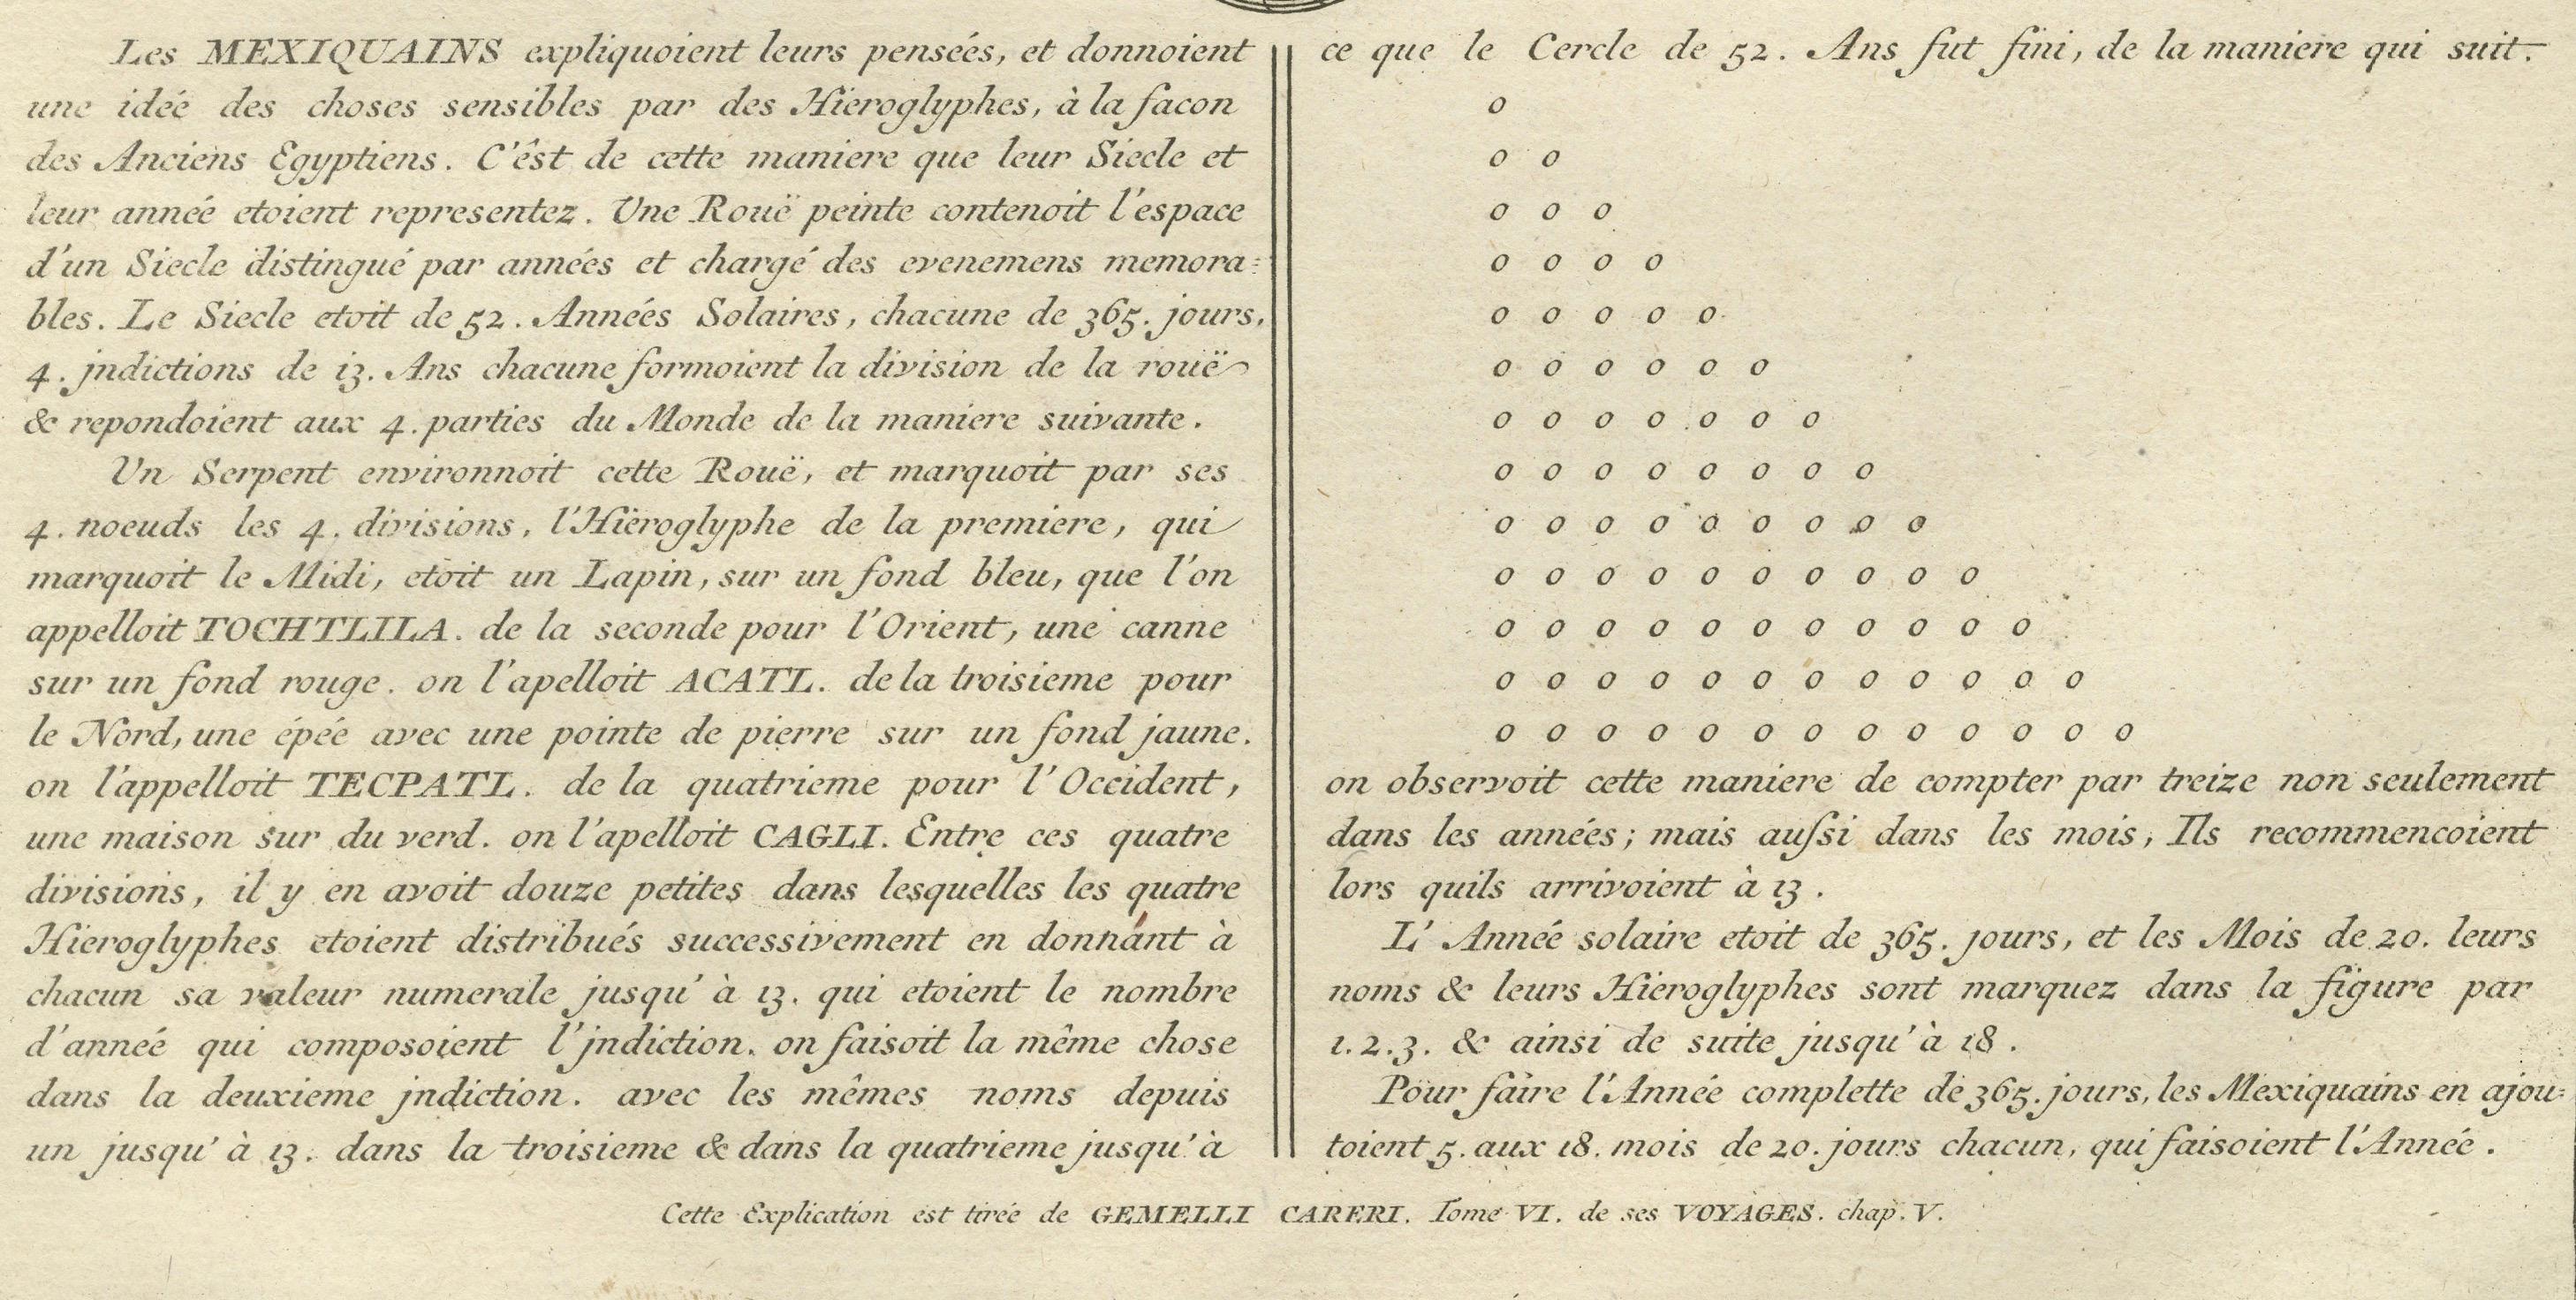 Les MEXIQUAINS expliquoient leurs penseés, et donnoient
une idéé des choses sensibles par des Hïeroglyphes, à la facon
des Anciens Egyptiens. C'êst de cette maniere que leur Siecle et
leur annéé etoient representez. Une Rouë peinte contenoit l'espace
d'un Siecle distingué par annéés et chargé des evenemens memora=
bles. Le Siecle etoit de 52. Annéés Solaires, chacune de 365. jours,
4. jndictions de 13. Ans chacune formoient la division de la rouë
& repondoient aux 4. parties du Monde de la maniere suivante.
Un Serpent environnoit cette Rouë, et marquoit par ses
4. noeuds les 4. divisions, l'Hïeroglyphe de la premiere, qui
marquoit le Midi, etoit un Lapin, sur un fond bleu, que l'on
appelloit TOCHTLILA. de la seconde pour l'Orient, une canne
sur un fond rouge. on l'apelloit ACATL. de la troisieme pour
le Nord, une épéé avec une pointe de pierre sur un fond jaune.
on l'appelloit TECPATL. de la quatrieme pour l'Occident,
une maison sur du verd. on l'apelloit CAGLI. Entre ces quatre
divisions, il y en avoit douze petites dans lesquelles les quatre
Hïeroglyphes etoient distribués successivement en donnant à
chacun sa valeur numerale jusqu'à 13. qui etoient le nombre
d'annéé qui composoient l'jndiction. on faisoit la même chose
dans la deuxieme jndiction. avec les mêmes noms depuis
un jusqu'à 13. dans la troisieme & dans la quatrieme jusqu'à
ce que le Cercle de 52. Ans fut fini, de la maniere qui suit.
o
o o
o o o
o o o o
o o o o o
o o o o o o
o o o o o o o
o o o o o o o o
o o o o o o o o o
o o o o o o o o o o
o o o o o o o o o o o
o o o o o o o o o o o o
o o o o o o o o o o o o o
on observoit cette maniere de compter par treize non seulement
dans les annéés; mais aussi dans les mois, Ils recommencoient
lors quils arrivoient à 13.
L'Annéé solaire etoit de 365. jours, et les Mois de 20. leurs
noms & leurs Hieroglyphes sont marquez dans la figure par
1. 2. 3. & ainsi de suite jusqu'à 18.
Pour faire l'Année complette de 365. jours, les Mexiquains en ajou=
toient 5. aux 18. mois de 20. jours chacun, qui faisoient l'Annéé.
Cette Explication est tirée de GEMELLI CARERI. Tome VI. de ses VOYAGES. chap. V.